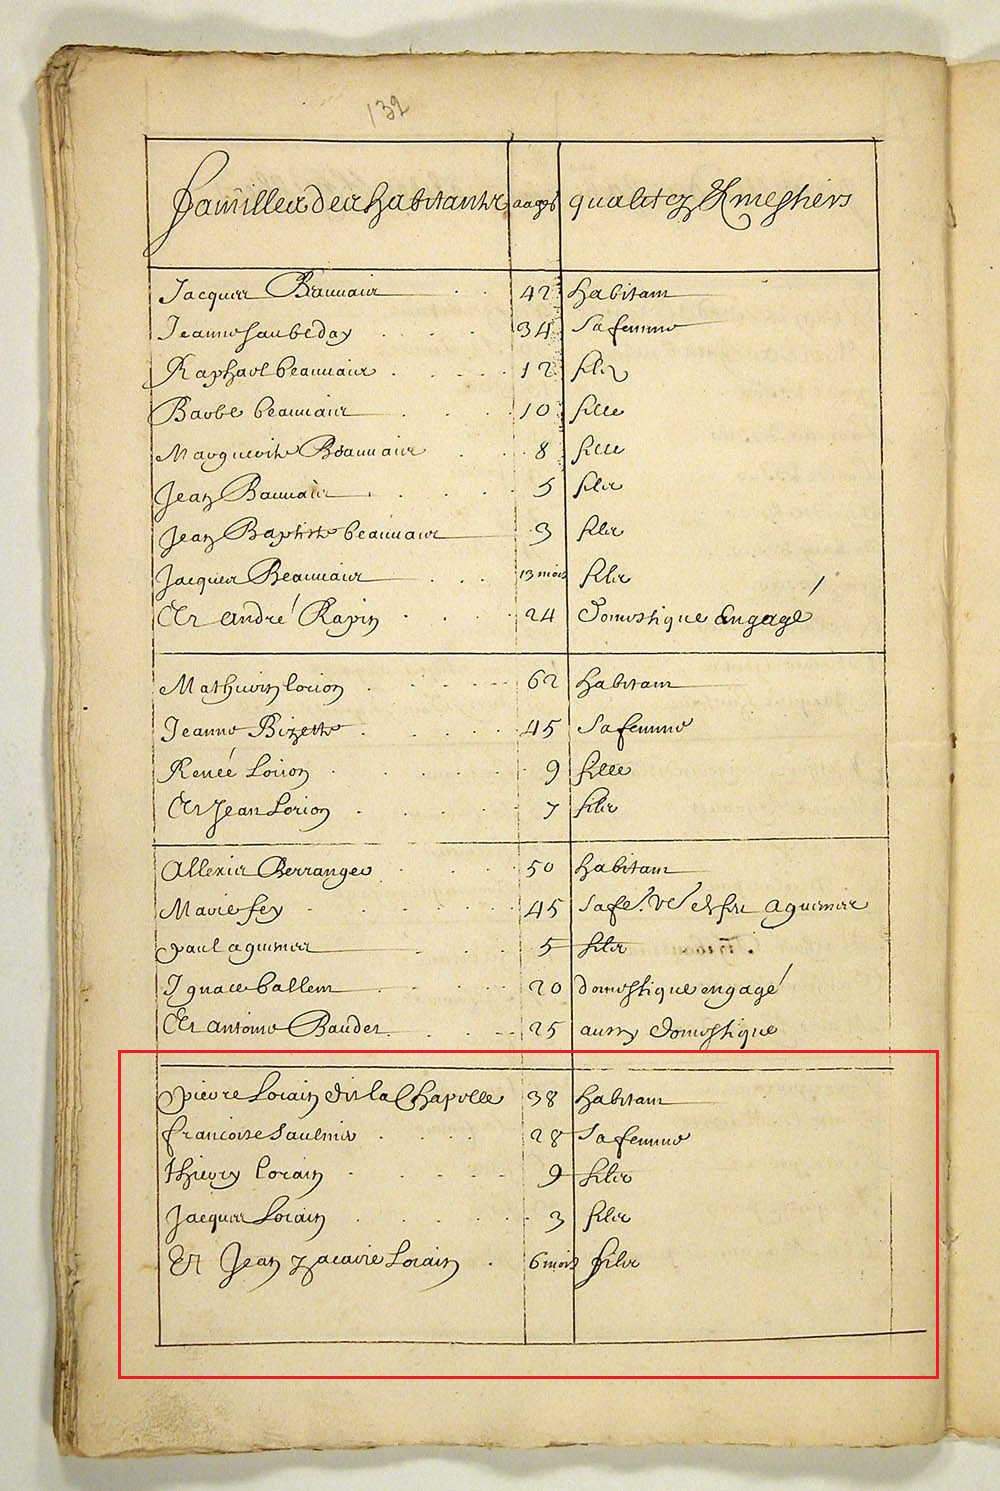 132
Familles des habitants aages qualitez & mestiers
Jacques Beauvais 42 habitant
Jeanne Saubeday 34 Sa femme
Raphael beauvais 12 fils
Barbe beauvais 10 fille
Marguerite Beauvais 8 fille
Jean Bauvais 5 fils
Jean Baptiste beauvais 3 fils
Jacques Beauvais 13 mois fils
Et andré Rapin 24 Domestique Engagé
Mathurin lorion 62 habitant
Jeanne Bizette 45 Sa femme
Renée Lorion 9 fille
Et Jean Lorion 7 fils
Allexis Berrangé 50 habitant
Marie fey 45 Sa fe. ve de feu aguenier
paul aguenier 5 fils
Ignace ballem 20 domestique engagé
Et antoine Baudet 25 aussy Domestique
pierre Lorain dit la Chapelle 38 habitant
francoise Saulnier 28 Sa femme
thiery lorain 9 fils
Jacques Lorain 3 fils
Et Jean zacarie Lorain 6 mois fils